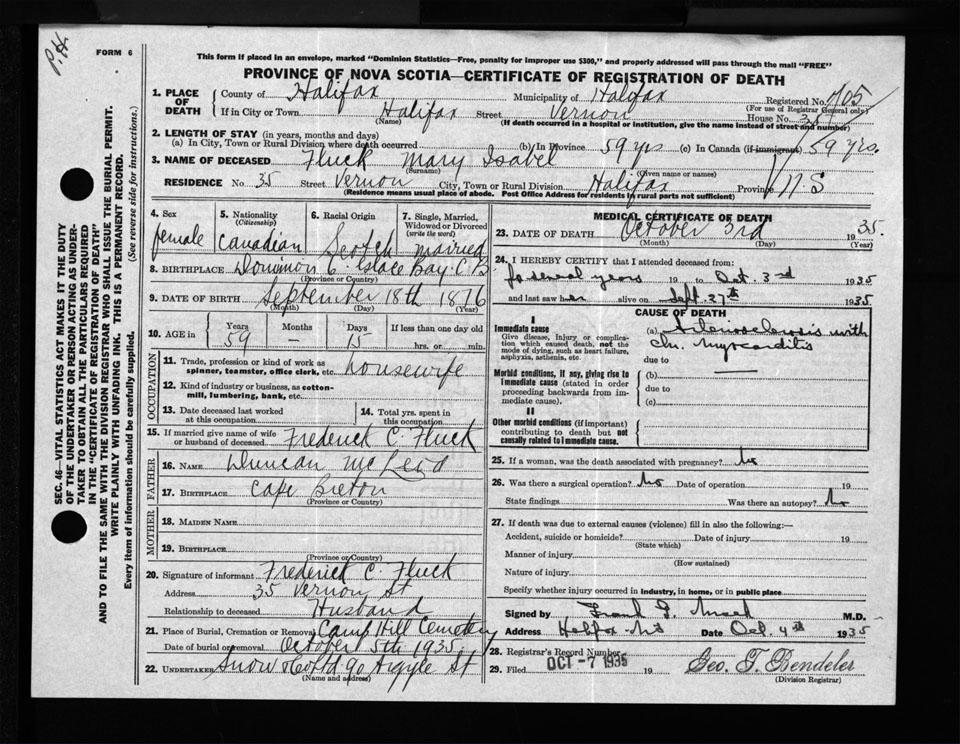 P.H.
FORM 6
This form if placed in an envelope, marked "Dominion Statistics—Free, penalty for improper use $300," and properly addressed will pass through the mail "FREE"
PROVINCE OF NOVA SCOTIA—CERTIFICATE OF REGISTRATION OF DEATH
SEC. 46—VITAL STATISTICS ACT MAKES IT THE DUTY
OF THE UNDERTAKER OR PERSON ACTING AS UNDER-
TAKER TO OBTAIN ALL THE PARTICULARS REQUIRED
IN THE "CERTIFICATE OF REGISTRATION OF DEATH"
AND TO FILE THE SAME WITH THE DIVISION REGISTRAR WHO SHALL ISSUE THE BURIAL PERMIT.
WRITE PLAINLY WITH UNFADING INK. THIS IS A PERMANENT RECORD.
Every item of information should be carefully supplied. (See reverse side for instructions.)
1. PLACE OF DEATH County of Halifax Municipality of Halifax Registered No. 1105
(For use of Registrar General only)
If in City or Town Halifax Street Vernon House No. 35
(Name) (If death occurred in a hospital or institution, give the name instead of street and number)
2. LENGTH OF STAY (in years, months and days)
(a) In City, Town or Rural Division where death occurred (b) In Province 59 yrs (c) In Canada (if immigrant) 59 yrs.
3. NAME OF DECEASED Fluck Mary Isabel
(Surname) (Given name or names)
RESIDENCE No. 35 Street Vernon City, Town or Rural Division Halifax Province N.S
(Residence means usual place of abode. Post Office Address for residents of rural parts not sufficient)
4. Sex female
5. Nationality (Citizenship) Canadian
6. Racial Origin Scotch
7. Single, Married, Widowed or Divorced (write the word) Married
8. BIRTHPLACE Dominion 6 Glace Bay. C.B.
(Province or Country)
9. DATE OF BIRTH September 18th 1876
(Month) (Day) (Year)
10. AGE in Years 59 Months – Days 15 If less than one day old hrs. or min.
OCCUPATION
11. Trade, profession or kind of work as spinner, teamster, office clerk, etc. housewife
12. Kind of industry or business, as cotton-mill, lumbering, bank, etc.
13. Date deceased last worked at this occupation
14. Total yrs. spent in this occupation
15. If married give name of wife or husband of deceased Frederick C. Fluck
FATHER
16. NAME Duncan McLeod
17. BIRTHPLACE Cape Breton
(Province or Country)
MOTHER
18. MAIDEN NAME
19. BIRTHPLACE
(Province or Country)
20. Signature of informant Frederick C. Fluck
Address 35 Vernon St
Relationship to deceased Husband
21. Place of Burial, Cremation or Removal Camp Hill Cemetery
Date of burial or removal October 5th 1935
22. UNDERTAKER Snow Argyle St
(Name and address)
MEDICAL CERTIFICATE OF DEATH
23. DATE OF DEATH October 3rd 1935.
(Month) (Day) (Year)
24. I HEREBY CERTIFY that I attended deceased from:
for several years 19 to Oct. 3rd 1935
and last saw her alive on Sept. 27th 1935
CAUSE OF DEATH
I
Immediate cause
Give disease, injury or complication which caused death, not the mode of dying, such as heart failure, asphyxia, asthenia, etc.
(a) Arteriosclerosis with
chr. Myocarditis
due to
Morbid conditions, if any, giving rise to immediate cause (stated in order proceeding backwards from immediate cause).
(b)
due to
(c)
II
Other morbid conditions (if important) contributing to death but not causally related to immediate cause.
25. If a woman, was the death associated with pregnancy? No
26. Was there a surgical operation? No Date of operation 19
State findings Was there an autopsy? No
27. If death was due to external causes (violence) fill in also the following:—
Accident, suicide or homicide? Date of injury 19
(State which)
Manner of injury
(How sustained)
Nature of injury
Specify whether injury occurred in industry, in home, or in public place
Signed by Frank M.D.
Address Halifax NS Date Oct. 4th 1935
28. Registrar's Record Number
29. Filed OCT -7 1935 19 Geo. T. Bendeler
(Division Registrar)